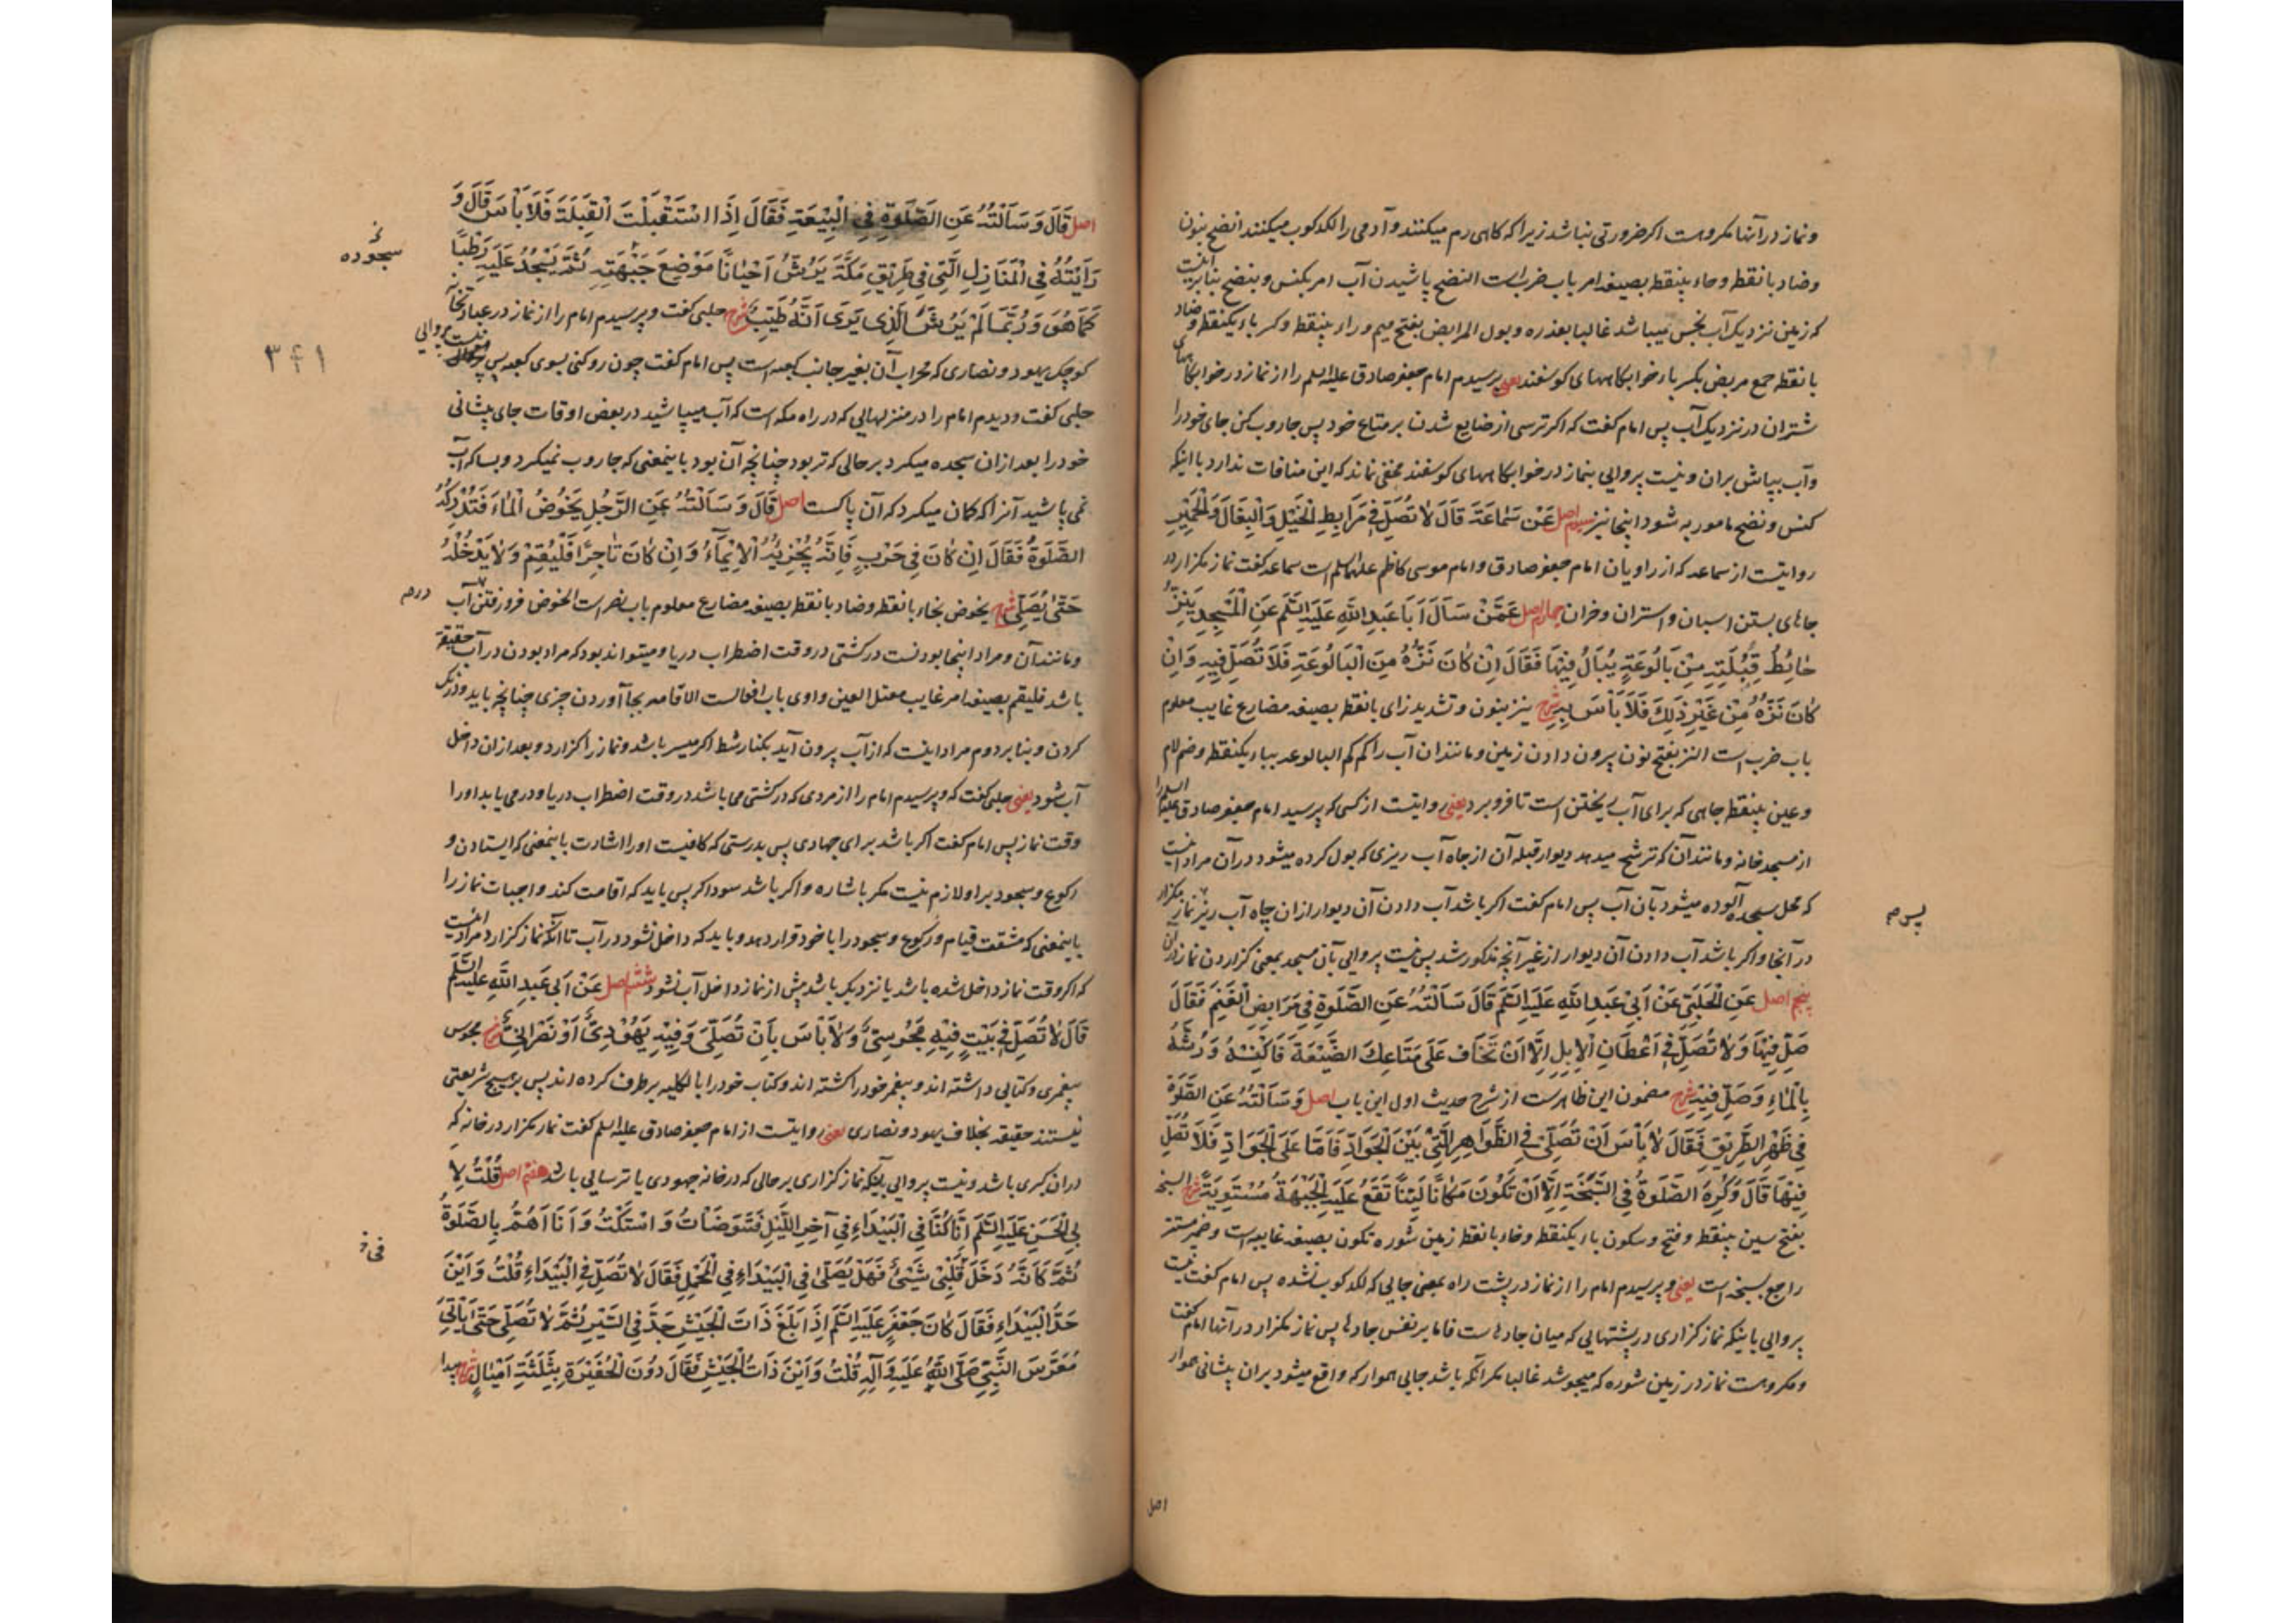 ونماز در آنها مکروهست اکر ضرورتی نباشد زیرا که کاهی رم میکنند و آدمی را لکدکوب میکنند انضح بنون
وضاد بانقطه وحاء بینقطه بصیغه امر باب ضرب است النضح پاشیدن آب امر بکنس و بنضح بنابر اینست
که زمین نزدیک آب نجس میباشد غالبا بعذره و بول المرابض بفتح میم و راء بینقطه و کسر باء یکنقطه وضاد
بانقطه جمع مربض بکسر باء خوابکاههای کوسفند یعنی پرسیدم امام جعفر صادق علیه السلم را از نماز در خوابکاههای
شتران در نزدیک آب پس امام کفت که اکر ترسی از ضایع شدن بر متاع خود پس جاروب کن جای خود را
وآب بپاش بران و نیست پروایی بنماز در خوابکاههای کوسفند مخفی نماند که این منافات ندارد با اینکه
کنس و نضح مامور به شود اینجا نیز سیوم اصل عَنْ سَمَاعَةَ قَالَ لَا تُصَلِّ فِي مَرَابِطِ الْخَيْلِ وَالْبِغَالِ وَالْحَمِيرِ
روایتست از سماعه که از راویان امام جعفر صادق و امام موسی کاظم علیهما السلم است سماعه کفت نماز مکزار در
جاهای بستن اسبان و استران و خران چهارم اصل عَمَّنْ سَأَلَ أَبَا عَبْدِ اللَّهِ عَلَيْهِ السَّلَمُ عَنِ الْمَسْجِدِ يَنِزُّ
حَائِطُ قِبْلَتِهِ مِنْ بَالُوعَةٍ يُبَالُ فِيهَا فَقَالَ إِنْ كَانَ نَزُّهُ مِنَ الْبَالُوعَةِ فَلَا تُصَلِّ فِيهِ وَإِنْ
كَانَ نَزُّهُ مِنْ غَيْرِ ذَلِكَ فَلَا بَأْسَ بِهِ شرح ینز بنون و تشدید زای بانقطه بصیغه مضارع غایب معلوم
باب ضرب است النز بفتح نون بیرون دادن زمین و مانند آن آب را کم کم البالوعه بباء یکنقطه وضم لام
وعین بینقطه چاهی که برای آب ریختن است تا فرو برد یعنی روایتست از کسی که پرسید امام جعفر صادق علیه السلم را
از مسجد خانه و مانند آن که ترشح میدهد دیوار قبله آن از چاه آب ریزی که بول کرده میشود در آن مراد اینست
که محل سجده آلوده میشود بآن آب پس امام کفت اکر باشد آب دادن آن دیوار ازان چاه آب ریز نماز مکزار
پس م
در آنجا و اکر باشد آب دادن آن دیوار از غیر آنچه مذکور شد پس نیست پروایی بآن مسجد بمعنی کزاردن نماز در آن
پنجم اصل عَنِ الْحَلَبِيِّ عَنْ أَبِي عَبْدِ اللَّهِ عَلَيْهِ السَّلَمُ قَالَ سَأَلْتُهُ عَنِ الصَّلَوةِ فِي مَرَابِضِ الْغَنَمِ فَقَالَ
صَلِّ فِيهَا وَلَا تُصَلِّ فِي أَعْطَانِ الْإِبِلِ إِلَّا أَنْ تَخَافَ عَلَى مَتَاعِكَ الضَّيْعَةَ فَاكْنُسْهُ وَرُشَّهُ
بِالْمَاءِ وَصَلِّ فِيهِ شرح مضمون این ظاهرست از شرح حدیث اول این باب اصل وَسَأَلْتُهُ عَنِ الصَّلَوةِ
فِي ظَهْرِ الطَّرِيقِ فَقَالَ لَا بَأْسَ أَنْ تُصَلِّيَ فِي الظَّوَاهِرِ الَّتِي بَيْنَ الْجَوَادِّ فَأَمَّا عَلَى الْجَوَادِّ فَلَا تُصَلِّ
فِيهَا قَالَ وَكُرِهَ الصَّلَوةُ فِي السَّبَخَةِ إِلَّا أَنْ تَكُونَ مَكَانًا لَيِّنًا تَقَعُ عَلَيْهِ الْجَبْهَةُ مُسْتَوِيَةً شرح السبخه
بفتح سین بینقطه و فتح و سکون باء یکنقطه و خاء بانقطه زمین شوره تکون بصیغه غایبه است و ضمیر مستتر
راجع بسبخه است یعنی و پرسیدم امام را از نماز در پشت راه بمعنی جایی که لکدکوب نشده پس امام کفت نیست
پروایی باینکه نماز کزاری در پشتهایی که میان جاده هاست فاما بر نفس جاده ها پس نماز مکزار در آنها امام کفت
و مکروهست نماز در زمین شوره که میجوشد غالبا مکر آنکه باشد جایی هموار که واقع میشود بران پیشانی هموار
اصل
اصل قَالَ وَسَأَلْتُهُ عَنِ الصَّلَوةِ فِي الْبِيعَةِ فَقَالَ إِذَا اسْتَقْبَلْتَ الْقِبْلَةَ فَلَا بَأْسَ قَالَ وَ
رَأَيْتُهُ فِي الْمَنَازِلِ الَّتِي فِي طَرِيقِ مَكَّةَ يَرُشُّ أَحْيَانًا مَوْضِعَ جَبْهَتِهِ ثُمَّ يَسْجُدُ عَلَيْهِ رَطْبًا
سجوده
كَمَا هُوَ وَرُبَّمَا لَمْ يَرُشَّ الَّذِي يَرَى أَنَّهُ طَيِّبٌ شرح حلبی کفت و پرسیدم امام را از نماز در عبادتخانه
کوچک یهود و نصاری که محراب آن بغیر جانب کعبه است پس امام کفت چون رو کنی بسوی کعبه پس نیست پروایی
۳۴۱
حلبی کفت و دیدم امام را در منزلهایی که در راه مکه است که آب میپاشید در بعض اوقات جای پیشانی
خود را بعد ازان سجده میکرد بر حالی که تر بود چنانچه آن بود باینمعنی که جاروب نمیکرد و بسا که آب
نمی پاشید آنرا که کمان میکرد که آن پاکست اصل قَالَ وَسَأَلْتُهُ عَنِ الرَّجُلِ يَخُوضُ الْمَاءَ فَتُدْرِكُهُ
الصَّلَوةُ فَقَالَ إِنْ كَانَ فِي حَرْبٍ فَإِنَّهُ يُجْزِيهُ الْإِيمَاءُ وَإِنْ كَانَ تَاجِرًا فَلْيُقِمْ وَلَا يَدْخُلْهُ
حَتَّى يُصَلِّيَ شرح یخوض بخاء بانقطه وضاد بانقطه بصیغه مضارع معلوم باب نصر است الخوض فرو رفتن در آب
و مانند آن و مراد اینجا بودنست در کشتی در وقت اضطراب دریا و میتواند بود که مراد بودن در آب حقیقة
باشد فلیقم بصیغه امر غایب معتل العین واوی باب افعالست الاقامه بجا آوردن چیزی چنانچه باید و درنک
کردن و بنابر دوم مراد اینست که از آب بیرون آید بکنار شط اکر میسر باشد و نماز را کزارد و بعد ازان داخل
آب شود یعنی حلبی کفت که و پرسیدم امام را از مردی که در کشتی می باشد در وقت اضطراب دریا و در می یابد او را
وقت نماز پس امام کفت اکر باشد برای جهادی پس بدرستی که کافیست او را اشارت باینمعنی که ایستادن و
رکوع و سجود بر او لازم نیست مکر باشاره و اکر باشد سوداکر پس باید که اقامت کند واجبات نماز را
باینمعنی که مشقت قیام و رکوع و سجود را با خود قرار دهد و باید که داخل نشود در آب تا آنکه نماز کزارد مراد اینست
که اکر وقت نماز داخل شده باشد یا نزدیک باشد پیش از نماز داخل آب نشود ششم اصل عَنْ أَبِي عَبْدِ اللَّهِ عَلَيْهِ السَّلَمُ
قَالَ لَا تُصَلِّ فِي بَيْتٍ فِيهِ مَجُوسِيٌّ وَلَا بَأْسَ بِأَنْ تُصَلِّيَ وَفِيهِ يَهُودِيٌّ أَوْ نَصْرَانِيٌّ شرح مجوس
پیغمبری و کتابی داشته اند و پیغمبر خود را کشته اند و کتاب خود را بالکلیه برطرف کرده اند پس بر هیچ شریعتی
نیستند حقیقة بخلاف یهود و نصاری یعنی روایتست از امام جعفر صادق علیه السلم کفت نماز مکزار در خانه که
دران کبری باشد و نیست پروایی بآنکه نماز کزاری بر حالی که در خانه جهودی یا ترسایی باشد هفتم اصل قُلْتُ لِأَ
بِي الْحَسَنِ عَلَيْهِ السَّلَمُ إِنَّا كُنَّا فِي الْبَيْدَاءِ فِي آخِرِ اللَّيْلِ فَتَوَضَّأْتُ وَاسْتَكْتُ وَأَنَا أَهُمُّ بِالصَّلَوةِ
ثُمَّ كَأَنَّهُ دَخَلَ قَلْبِي شَيْئٌ فَهَلْ يُصَلَّى فِي الْبَيْدَاءِ فِي الْمَحْمِلِ فَقَالَ لَا تُصَلِّ فِي الْبَيْدَاءِ قُلْتُ وَأَيْنَ
حَدُّ الْبَيْدَاءِ فَقَالَ كَانَ جَعْفَرٌ عَلَيْهِ السَّلَمُ إِذَا بَلَغَ ذَاتَ الْجَيْشِ جَدَّ فِي السَّيْرِ ثُمَّ لَا تُصَلِّي حَتَّى يَأْتِيَ
مُعَرَّسَ النَّبِيِّ صَلَّى اللَّهُ عَلَيْهِ وَآلِهِ قُلْتُ وَأَيْنَ ذَاتُ الْجَيْشِ فَقَالَ دُونَ الْحُفَيْرَةِ بِثَلَثَةِ أَمْيَالٍ شرح بیدا